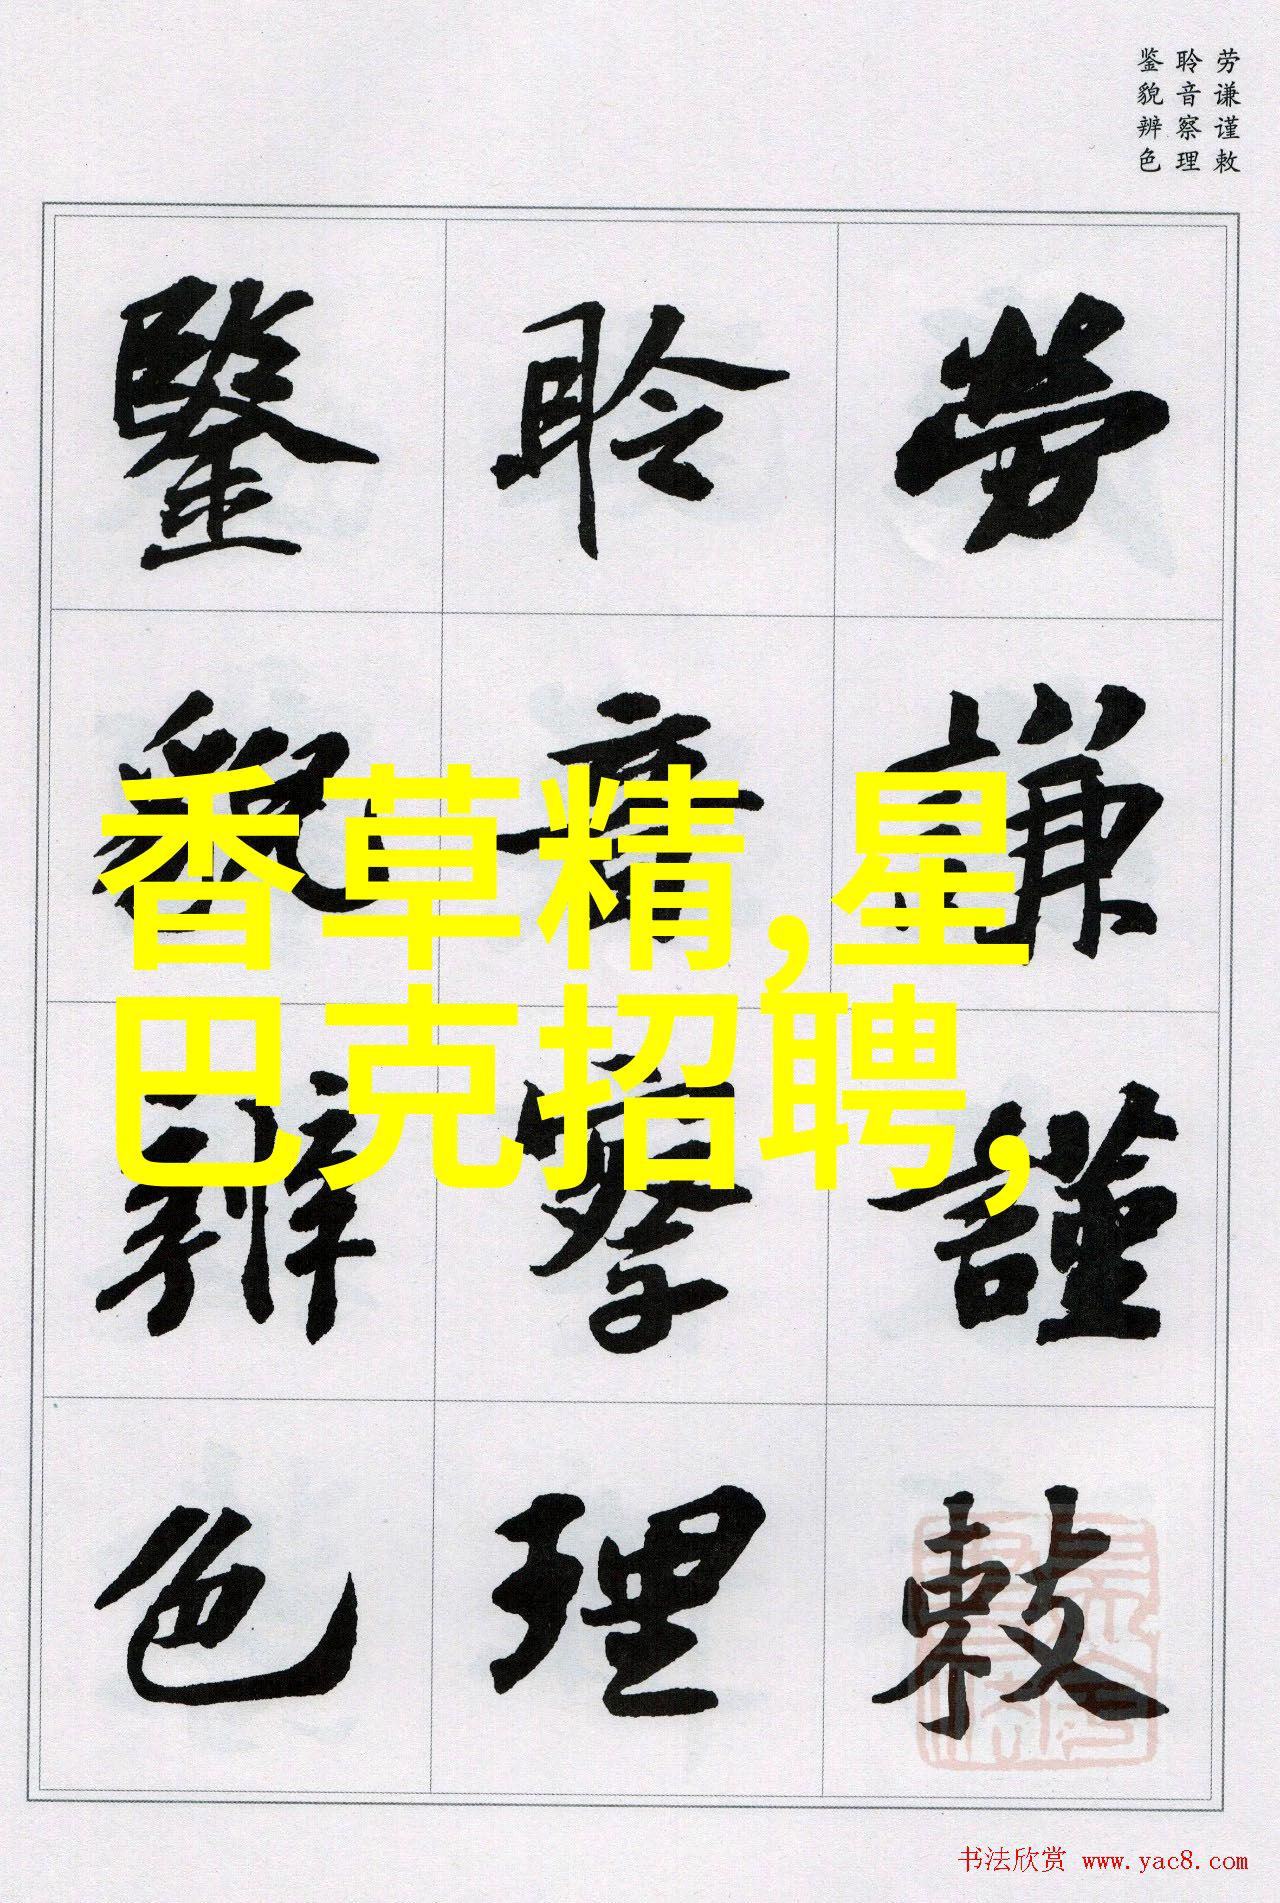 劳谦谨敕
聆音察理
鉴貌辨色
勞謙謹敕
聆音察理
鑒貌辨色
香草精,星
巴克招聘,
书法欣赏 www.yac8.com